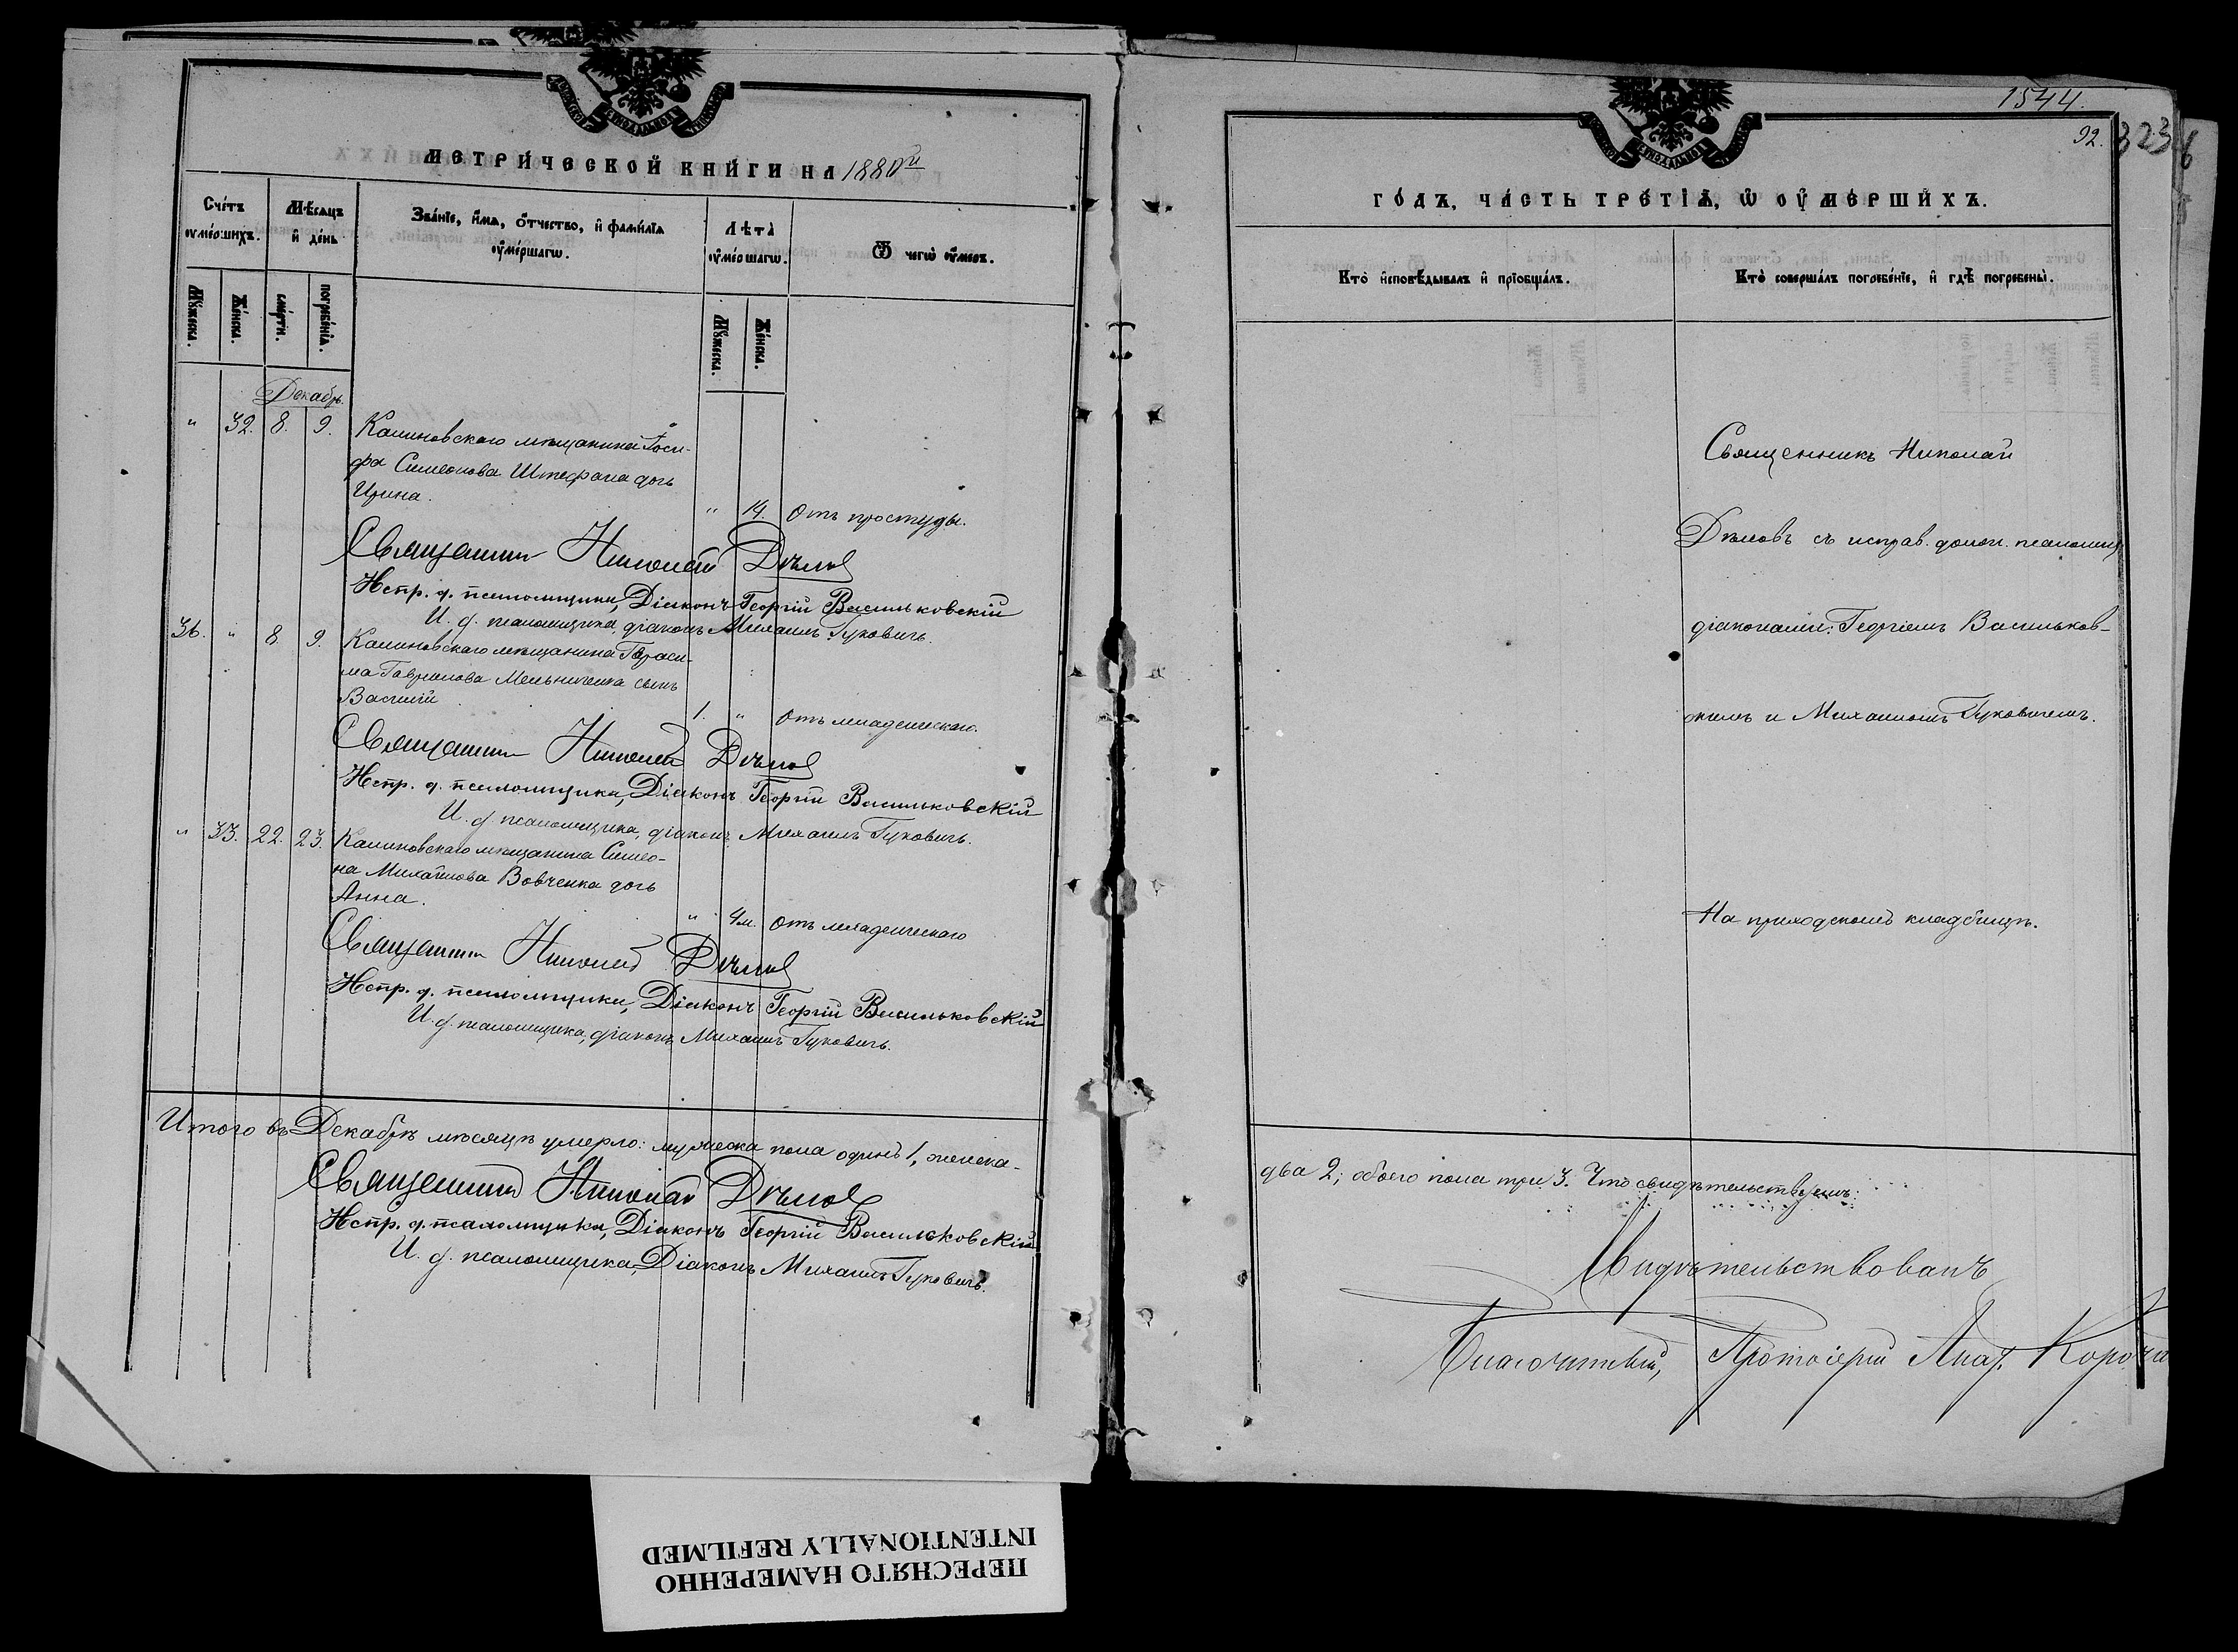 МЕТРИЧЕСКОЙ КНИГИ НА 1880й
Счетъ умершихъ.
Мѣсяцъ и день
Званіе, имя, отчество, и фамилія умершагω.
Лѣта умершагω.
Ѿ чегω умеръ.
Мужеска.
Женска.
смерти.
погребенія.
Мужеска.
Женска.
Декабрь.
" 32. 8. 9. Калиновскаго мѣщанина Іоси-
фа Симеонова Штефана дочь
Ирина.
" 14. Отъ простуды.
Священникъ Николай Дѣмовъ
Испр. д. псаломщика, Діаконъ Георгій Васильковскій
И. д. псаломщика, діаконъ Михаилъ Гуковичъ.
36. " 8. 9. Калиновскаго мѣщанина Гераси-
ма Гаврилова Мельниченка сынъ
Василій
1. " Отъ младенческаго.
Священникъ Николай Дѣмовъ
Испр. д. псаломщика, Діаконъ Георгій Васильковскій
И. д. псаломщика, діаконъ Михаилъ Гуковичъ.
" 33. 22. 23. Калиновскаго мѣщанина Симео-
на Михайлова Вовченка дочь
Анна.
" 4м. Отъ младенческаго
Священникъ Николай Дѣмовъ
Испр. д. псаломщика, Діаконъ Георгій Васильковскій
И. д. псаломщика, діаконъ Михаилъ Гуковичъ.
Итого въ Декабрѣ мѣсяцѣ умерло: мужеска пола одинъ 1, женска-
Священникъ Николай Дѣмовъ
Испр. д. псаломщика, Діаконъ Георгій Васильковскій
И. д. псаломщика, Діаконъ Михаилъ Гуковичъ.
1544.
92. 323
ГОДЪ, ЧАСТЬ ТРЕТІЯ, Ѡ УМЕРШИХЪ.
Кто исповѣдывалъ и пріобщалъ.
Кто совершалъ погребеніе, и гдѣ погребены.
Священникъ Николай
Дѣмовъ съ исправ. долж. псаломщ.
діаконами: Георгіемъ Васильков-
скимъ и Михаиломъ Гуковичемъ.
На приходскомъ кладбищѣ.
два 2; обоего пола три 3. Что свидѣтельствуемъ:
Свидѣтельствовалъ
Благочинный, Протоіерей
ПЕРЕСНЯТО НАМЕРЕННО
INTENTIONALLY REFILMED